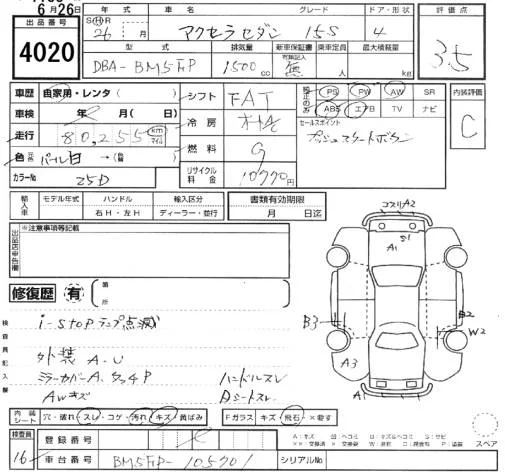 6月26日
出品番号
4020
年式 車名 グレード ドア・形状
S H R 26年 月 アクセラセダン 15S 4
型式 排気量 新車保証書 乗車定員 最大積載量
DBA-BM5FP 1500cc 有記載記入 無 人 kg
評価点
3.5
車歴 自家用・レンタ( )
車検 年 月
走行 80,255 km マイル
色 パール白→( )
カラーNo 25D
シフト FAT
冷房
燃料 G
リサイクル料金 10770円
PS PW AW SR
ABS エアB TV ナビ
セールスポイント
プッシュスタートボタン
内装評価
C
輸入車 モデル年式 ハンドル 輸入区分
年 右H・左H ディーラー・並行
書類有効期限
月 日迄
出品店申告欄
※注意事項等記載
修復歴 有 箇所
検査員記入欄
i-stopランプ点滅
外装 A.U
ミラーカバーA. タッチP ハンドルスレ
AWキズ Dシートスレ
コスリA2
A1
S1
B3
B2
W2
A3
A1
内装シート 穴・破れ・スレ・コゲ・汚れ・キズ・黄ばみ Fガラス キズ・飛石・×要す
検査員
16
登録番号
車台番号 BM5FP-105701 シリアルNo
A:キズ
スペア